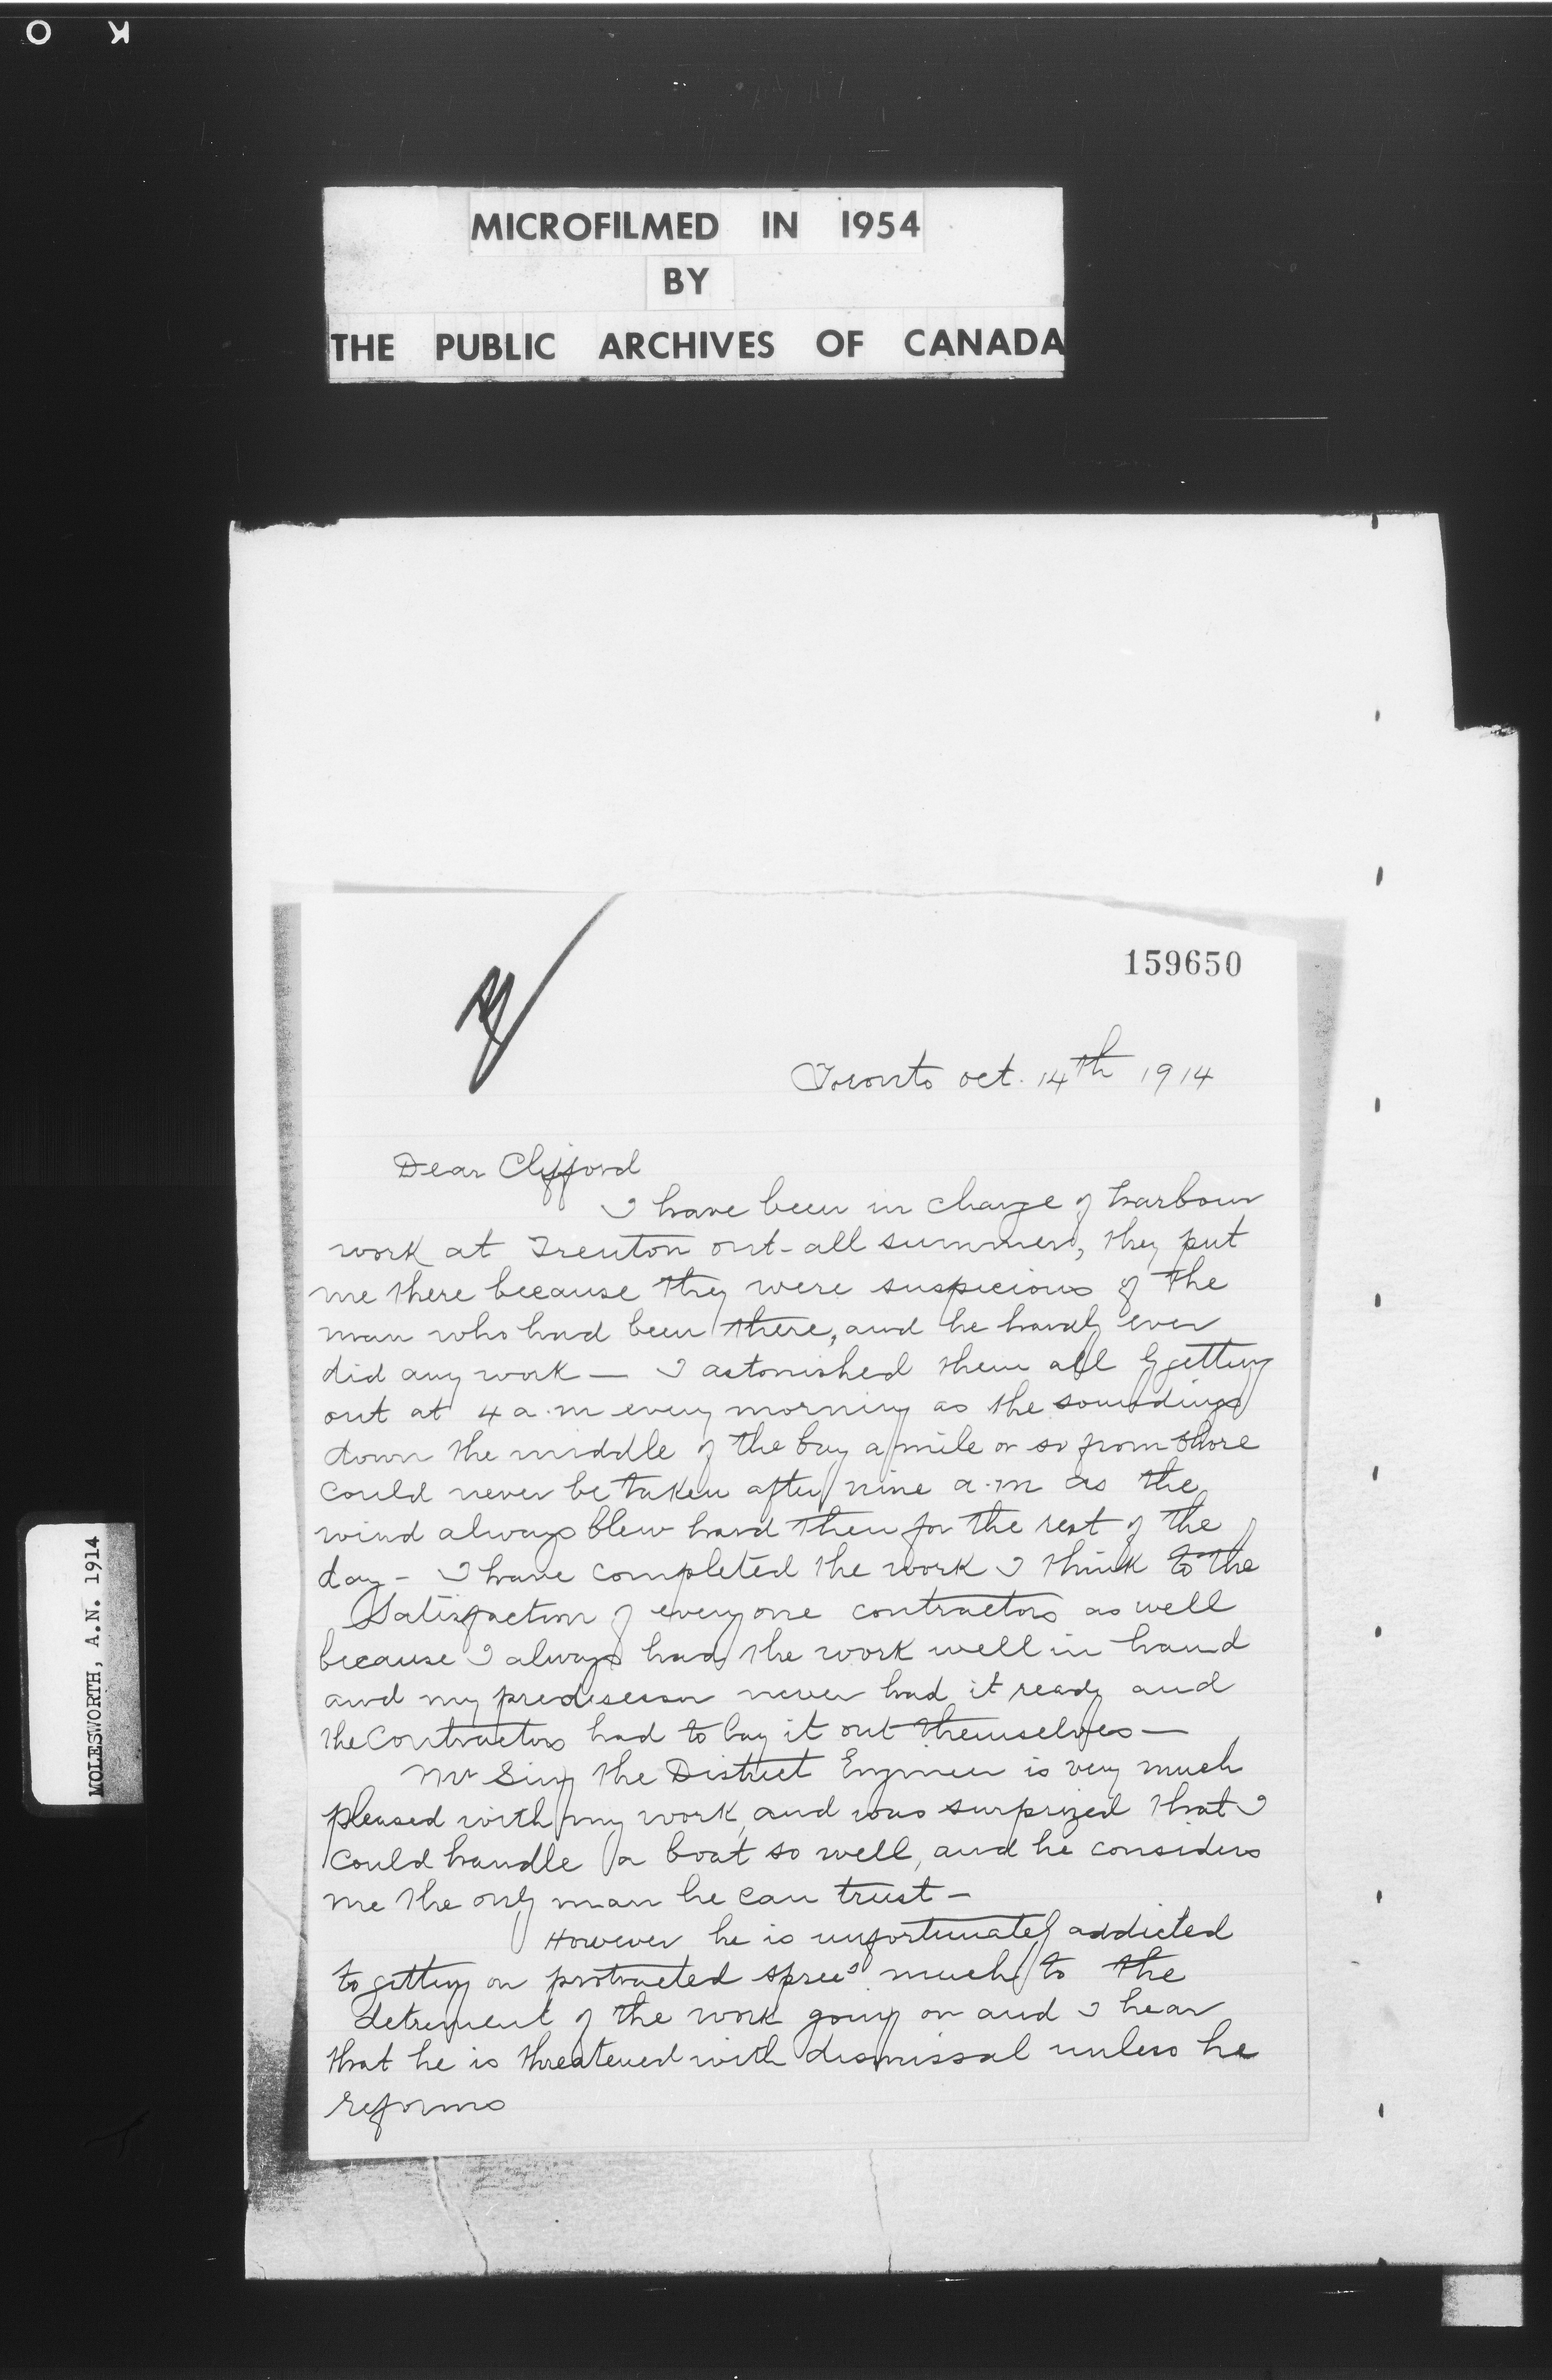 O K
MICROFILMED IN 1954
BY
THE PUBLIC ARCHIVES OF CANADA
MOLESWORTH, A.N. 1914
159650
Toronto Oct. 14th 1914
Dear Clifford
I have been in charge of harbour
work at Trenton ont. all summer, they put
me there because they were suspicious of the
man who had been there, and he hardly ever
did any work — I astonished them all by getting
out at 4 a.m every morning as the soundings
down the middle of the bay a mile or so from shore
could never be taken after nine a.m as the
wind always blew hard then for the rest of the
day — I have completed the work I think to the
Satisfaction of everyone contractors as well
because I always had the work well in hand
and my predisessor never had it ready and
the Contractors had to lay it out themselves —
Mr Sing the District Engineer is very much
pleased with my work, and was surprized that I
could handle a boat so well, and he considers
me the only man he can trust —
However he is unfortunately addicted
to getting on protracted spree's much to the
detrement of the work going on and I hear
that he is threatened with dismissal unless he
reforms